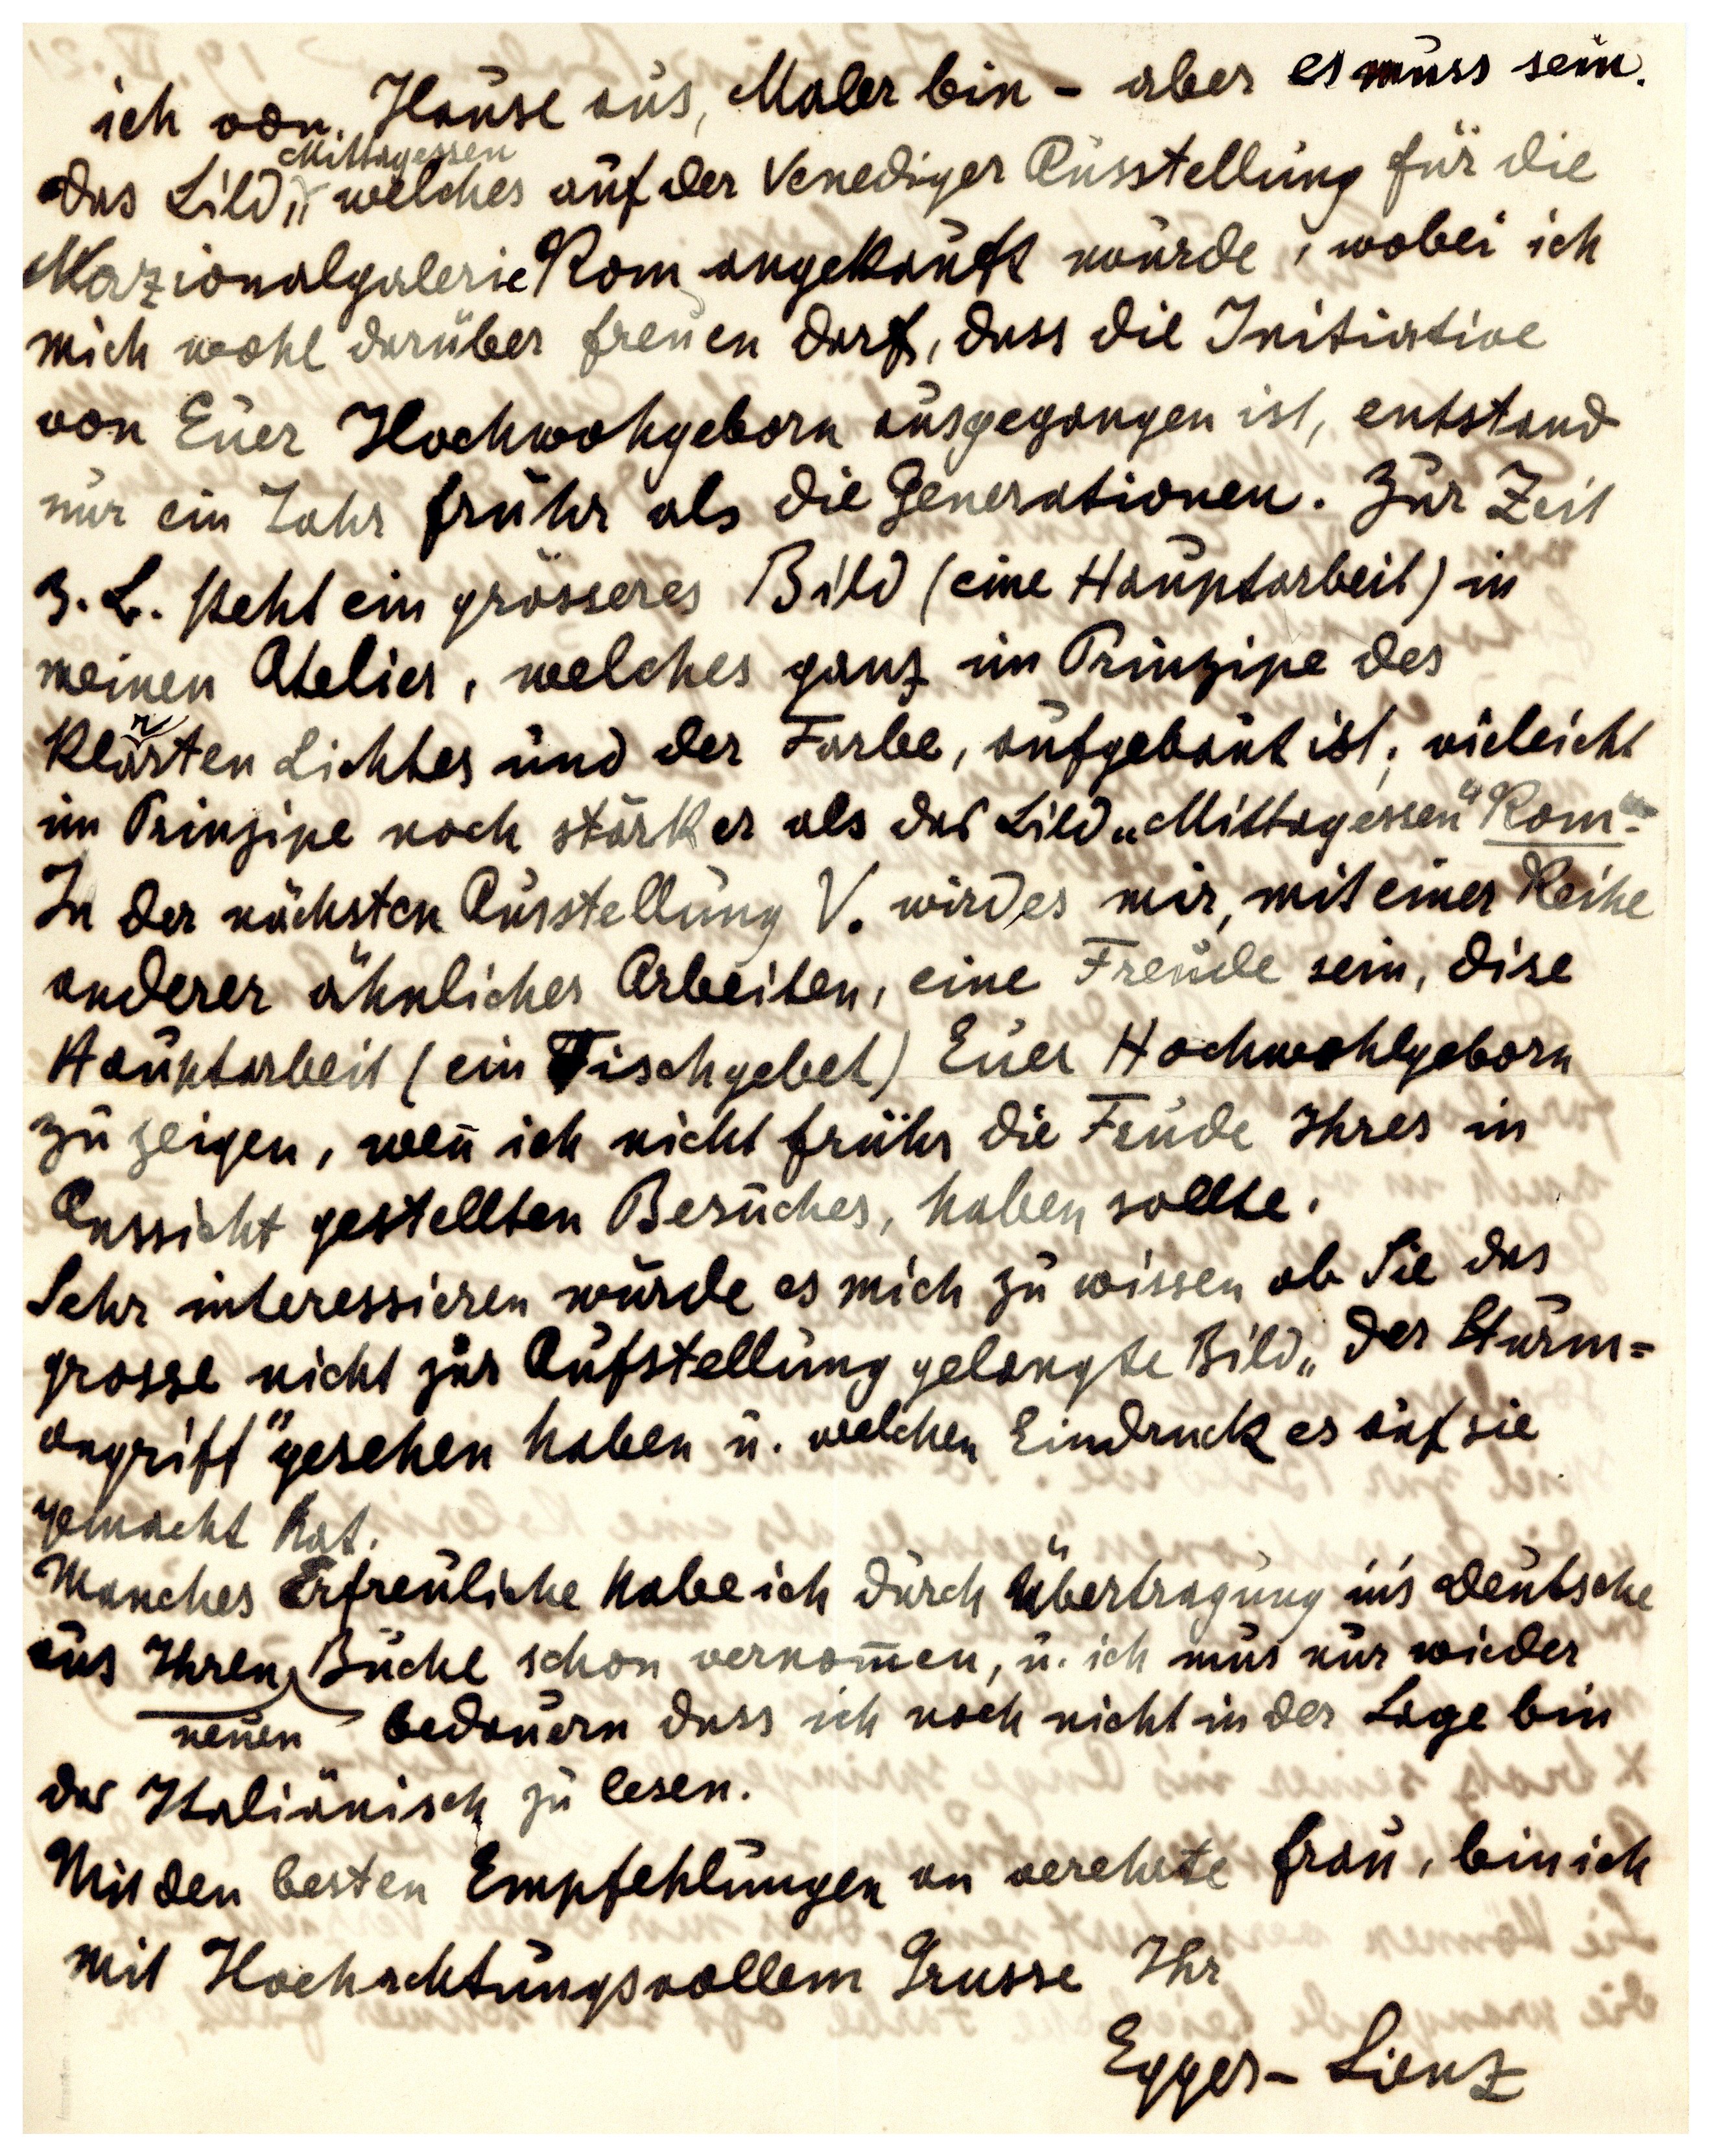 ich von Hause aus, Maler bin - aber es muss sein.
Mittagessen
das Bild „ welches auf der Venediger Ausstellung für die
Nazionalgalerie Rom angekauft wurde, wobei ich
mich wohl darüber freuen darf, dass die Initiative
von Euer Hochwohgeborn ausgegangen ist, entstand
nur ein Jahr frühr als die Generationen. Zur Zeit
z. B. steht ein grösseres Bild (eine Hauptarbeit) in
meinen Atelier, welches ganz im Prinzipe des
klarsten Lichtes und der Farbe, aufgebaut ist; vieleicht
im Prinzipe noch stärker als das Bild „Mittagessen" Rom.
In der nächsten Ausstellung V. wird es mir, mit einer Reihe
anderer ähnlicher Arbeiten, eine Freude sein, dise
Hauptarbeit (ein Tischgebet) Euer Hochwohlgeborn
zu zeigen, wen̄ ich nicht frühr die Freude Ihres in
Aussicht gestellten Besuches, haben sollte.
Sehr interessieren würde es mich zu wissen ob Sie das
grosse nicht zur Aufstellung gelangte Bild „Der Sturm=
angriff" gesehen haben u. welchen Eindruck es auf sie
gemacht hat.
Manches Erfreuliche habe ich durch Übertragung in's deutsche
aus Ihren Buche schon vernom̄en, u. ich mus nur wieder
neuen bedauern dass ich noch nicht in der Lage bin
das Italiänisch zu lesen.
Mit den besten Empfehlungen an verehrte frau, bin ich
mit Hochachtungsvollem Grusse Ihr
Egger-Lienz